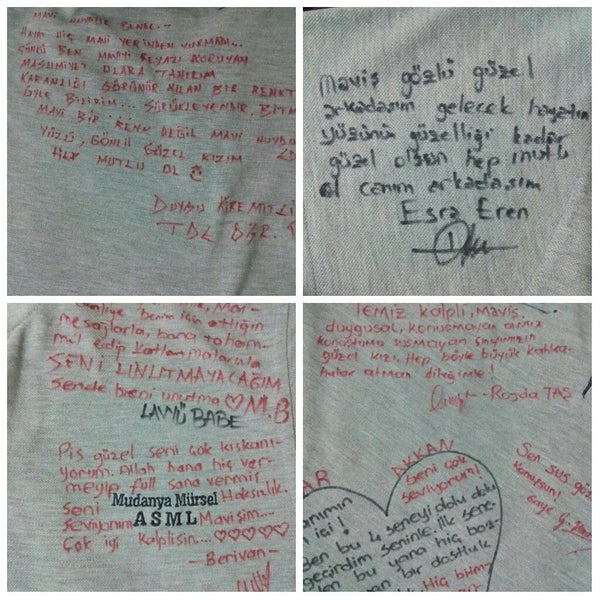 MAVİ HUYDUR BENDE...
HAYAT HİÇ MAVİ YERİNDEN VURMADI...
ÇÜNKÜ BEN MAVİYİ BEYAZI KORUYAN
MASUMİYET OLARA TANIRIM
KARANLIĞI GÖRÜNÜR KILAN BİR RENKTİ
ÖYLE BİLİRİM... SÜRÜKLEYENDİR. BİTM
MAVİ BİR RENK DEĞİL MAVİ HUYDU
YÜZLÜ, GÖNLÜ GÜZEL KIZIM
HEP MUTLU OL
DUYGU KİREMİTLİ
TDE ÖĞR.
Maviş gözlü güzel
arkadaşım gelecek hayatın
yüzünü güzelliği kadar
güzel olsun hep mutlu
ol canım arkadaşım
Esra Eren
benim için attığın
mesajlarla, bana taham-
mül edip katlanmalarınla
SENİ UNUTMAYACAĞIM
sende beni unutma ♡ M.B
LAWÜ BABE
Pis güzel seni çok kıskanı-
yorum. Allah bana hiç ver-
meyip full sana vermiş
Haksızlık.
seni
Mudanya Mürsel
seviyorum
ASML
Mavişim....
Çok iyi kalplisin... ♡♡♡♡♡
-Berivan-
TEMİZ KALPLİ, MAVİŞ,
duygusal, konuşmayan ama
konuştumu susmayan sınıfımızın
güzel kızı. Hep böyle büyük kahka-
halar atman dileğimle!
- Rojda TAŞ
AYKAN
Seni çok
seviyorum!
AR
anımın
içi!
Ben bu 4 seneyi dolu dolu
geçirdim seninle. İlk sene-
den bu yana hiç boz-
an bir dostluk
Hiç bitm-
Sen sus göz
konuşsun!